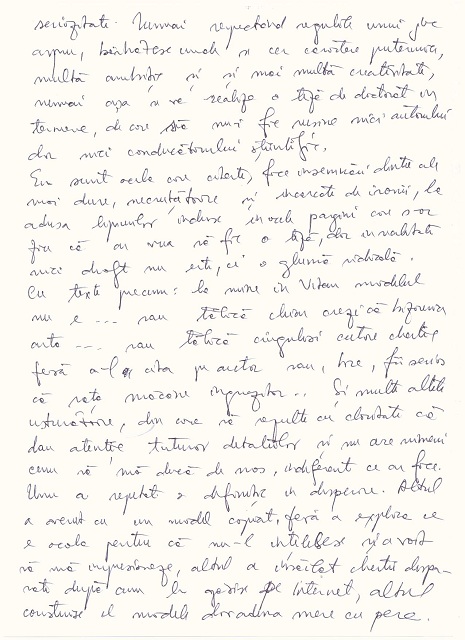 seriozitate. Numai respectând regulile unui joc
aspru, bărbătesc unde se cer caractere puternice,
multă ambiție și și mai multă creativitate,
numai așa se va realiza o teză de doctorat în
termene, de care să nu-i fie rușine nici autorului
dar nici conducătorului științific.
Eu sunt acela care citește, face însemnări dintre cele
mai dure, necruțătoare și încărcate de ironii, la
adresa lipsurilor incluse în acele pagini care s-ar
fi că ar vrea să fie o teză, dar în realitate
nici draft nu este, ci o glumă ridicolă.
Cu texte precum: la mine în Vitan modelul
nu e --- sau tălică chiar crezi că
--- sau tălică către
fără a-l cita pe autor sau, hai, fii serios
că rața măcăne .. Și multe altele
usturătoare, din care să rezulte cu claritate că
dau atenție tuturor detaliilor și nu are nimeni
cum să mă ducă de nas, indiferent ce ar face.
Unul a repetat o definiție în disperare. Altul
a venit cu un model copiat, fără a explica ce
e acolo pentru că nu-l înțelesese și a vrut
să mă impresioneze, altul a înșirat chestii dispa-
rate după cum le găsise pe Internet, altul
construise el modele d'oradina mere cu pere.